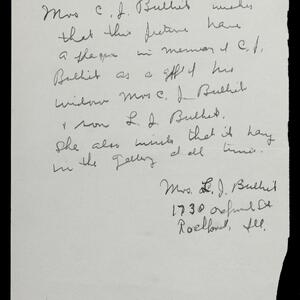 Mrs C. J. Bulliet wishes
that this picture have
a plaque in memory of C. J.
Bulliet as a gift of his
widow Mrs C. J. Bulliet
& son L. J. Bulliet
She also wants that it hang
in the gallery at all times.
Mrs. L. J. Bulliet
1730 St
Rockford, Ill.